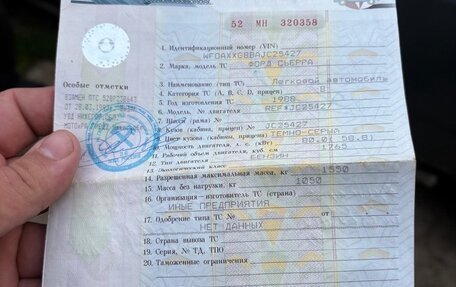 52 МН 320358
1. Идентификационный номер (VIN) WF0AXXGBBAJC25427
2. Марка, модель ТС ФОРД СЬЕРРА
3. Наименование (тип ТС) Легковой автомобиль
4. Категория ТС (А, В, С, D, прицеп) В
5. Год изготовления ТС 1988
6. Модель, № двигателя REF*JC25427
7. Шасси (рама) №
8. Кузов (кабина, прицеп) № JC25427
9. Цвет кузова (кабины, прицепа) ТЕМНО-СЕРЫЙ
10. Мощность двигателя, л. с. (кВт) 80.01 (58.8)
11. Рабочий объем двигателя, куб. см 1765
12. Тип двигателя БЕНЗИН
13. Экологический класс
14. Разрешенная максимальная масса, кг 1550
15. Масса без нагрузки, кг 1050
16. Организация-изготовитель ТС (страна)
ИНЫЕ ПРЕДПРИЯТИЯ
17. Одобрение типа ТС № от
НЕТ ДАННЫХ
18. Страна вывоза ТС
19. Серия, № ТД, ТПО
20. Таможенные ограничения
Особые отметки
ВЗАМЕН ПТС